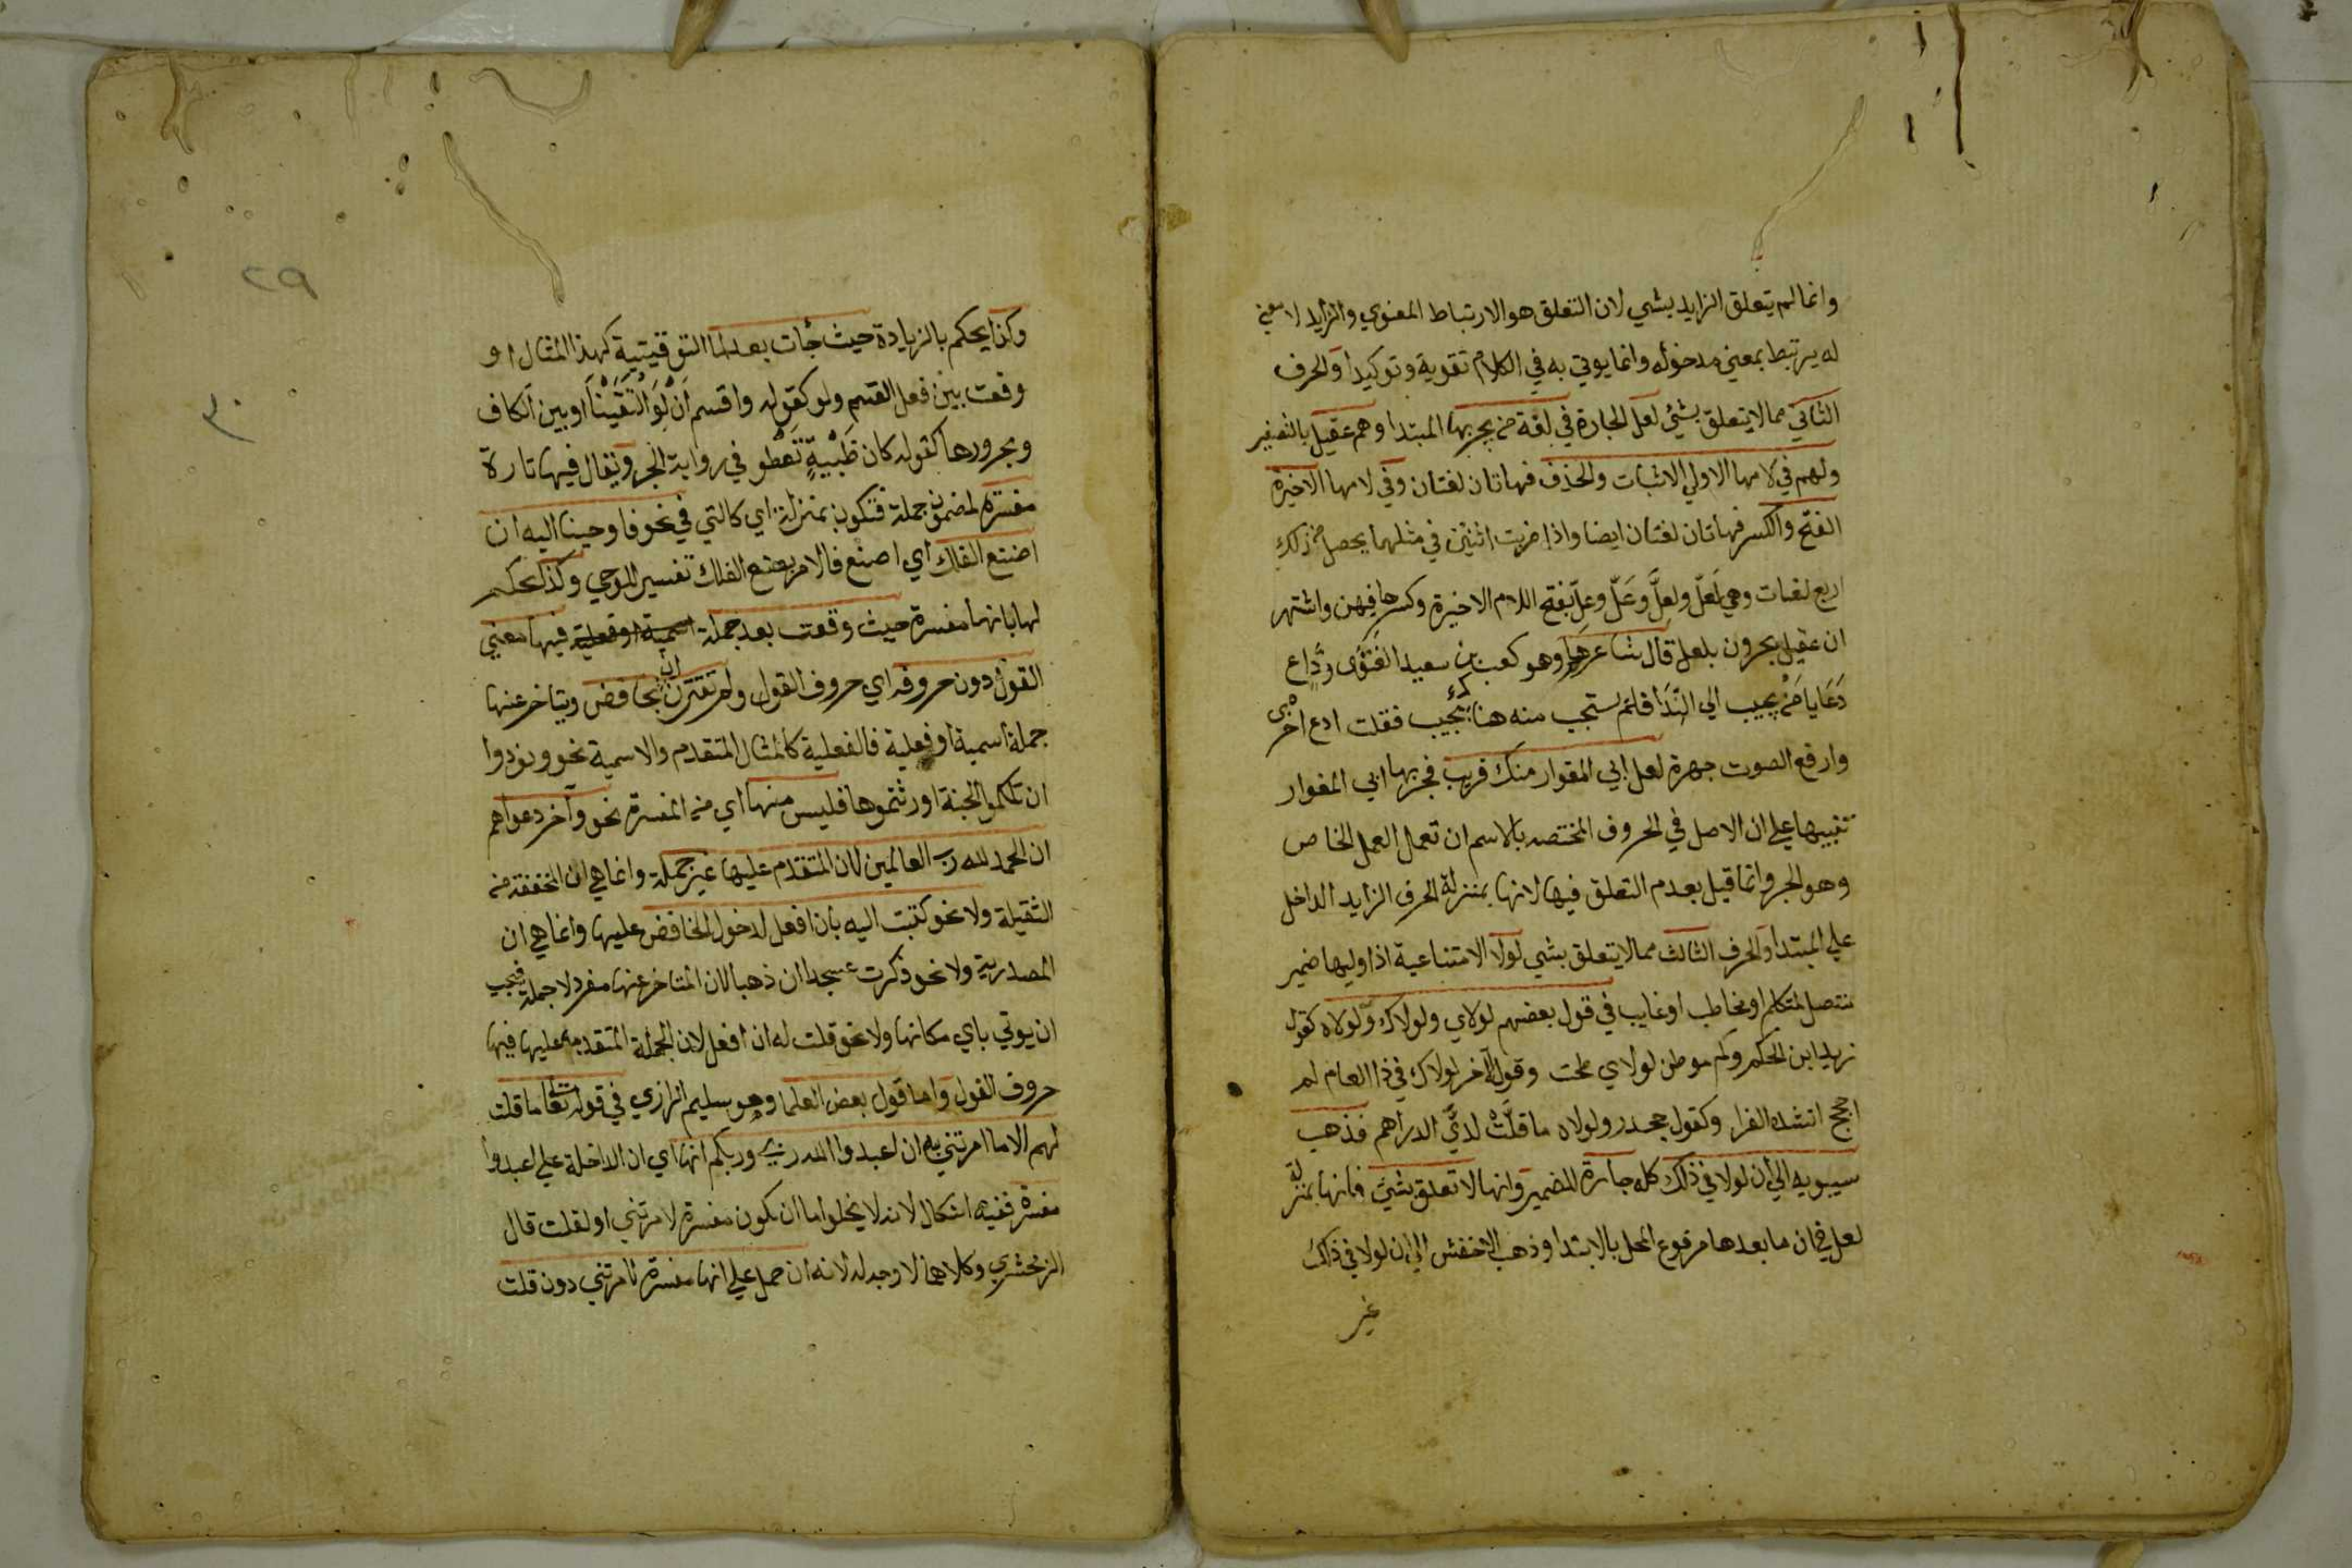 وانما لم يتعلق الزايد بشي لان التعلق هو الارتباط المعنوي والزايد لا معني
له يرتبط بمعني مدخوله وانما يوتي به في الكلام تقوية وتوكيدا والحرف
الثاني مما لا يتعلق بشئ لعل الجارة في لغة من يجر بها المبتدا وهم عقيل بالتصغير
ولهم في لامها الاولي الاثبات والحذف فهاتان لغتان وفي لامها الاخيرة
الفتح والكسر فهاتان لغتان ايضا واذا ضربت اثنين في مثلهما يحصل من ذلك
اربع لغات وهي لَعَلَّ ولعلِّ وعَلَّ وعلِّ بفتح اللام الاخيرة وكسرها فيهن واشتهر
ان عقيل يجرون بلعل قال شاعرهم وهو كعب بن سعيد الغنوي وداع
دَعَا يا مَنْ يجيب الي النِّدَا فلم يستجب منه هناك مجيب فقلت ادع اخري
وارفع الصوت جهرة لعل ابي المغوار منك قريب فجر بها ابي المغوار
تنبيها علي ان الاصل في الحروف المختصه بالاسم ان تعمل العمل الخاص
وهو الجر وانما قيل بعدم التعلق فيها لانها بمنزلة الحرف الزايد الداخل
علي المبتدا والحرف الثالث مما لا يتعلق بشي لولا الامتناعية اذا وليها ضمير
متصل لمتكلم او مخاطب او غايب في قول بعضهم لولاي ولولاك ولولاه كقول
زيد ابن الحكم وكم موطن لولاي طحت وقول الآخر لولاك في ذا العام لم
احجج انشده الفرا وكقول جحدر ولولاه ما قلَّتْ لديَّ الدراهم فذهب
سيبويه الي ان لولا في ذلك كله جارة للضمير وانها لا تتعلق بشئ فانها بمنزلة
لعل في ان ما بعدها مرفوع المحل بالابتدا وذهب الاخفش الي ان لولا في ذلك
غير
٢٩
٣٠
وكذا يحكم بالزيادة حيث جأت بعد لما التوقيتية كهذا المثال او
وقعت بين فعل القسم ولو كقوله واقسم أَنْ لَوِ الْتَقَيْنَا او بين الكاف
ومجرورها كقوله كان ظَبْيةٍ تَعْطو في رواية الجر ويقال فيها تارة
مفسرة لمضمون جملة فتكون بمنزلة اي كالتي في نحو فاوحينا اليه ان
اضنع الفلك اي اصنع فالامر بصنع الفلك تفسير للوحي وكذا يحكم
لها بانها مفسرة حيث وقعت بعد جملة اسمية او فعلية فيها معني
القول دون حروفه اي حروف القول ولم تقترن ان بخافض ويتاخر عنها
جملة اسمية او فعلية فالفعلية كالمثال المتقدم والاسمية نحو ونودوا
ان تلكموا الجنة اورثتموها فليس منها اي من المفسرة نحو وآخر دعواهم
ان الحمد لله رب العالمين لان المتقدم عليها غير جملة وانما هي ان المخففة من
الثقيلة ولا نحو كتبت اليه بان افعل لدخول الخافض عليها وانما هي ان
المصدرية ولا نحو ذكرت عسجدا ان ذهبا لان المتاخر عنها مفرد لا جملة فيجب
ان يوتي باي مكانها ولا نحو قلت له ان افعل لان الجملة المتقدمة عليها فيها
حروف القول واما قول بعض العلما وهو سليم الرازي في قوله تعا ما قلت
لهم الا ما امرتني به ان اعبدوا الله ربي وربكم انها اي ان الداخلة علي اعبدوا
مفسرة ففيه اشكال لانه لا يخلو اما ان تكون مفسرة لامرتني او لقلت قال
الزمخشري وكلاهما لا وجه له لانه ان حمل علي انها مفسرة لامرتني دون قلت